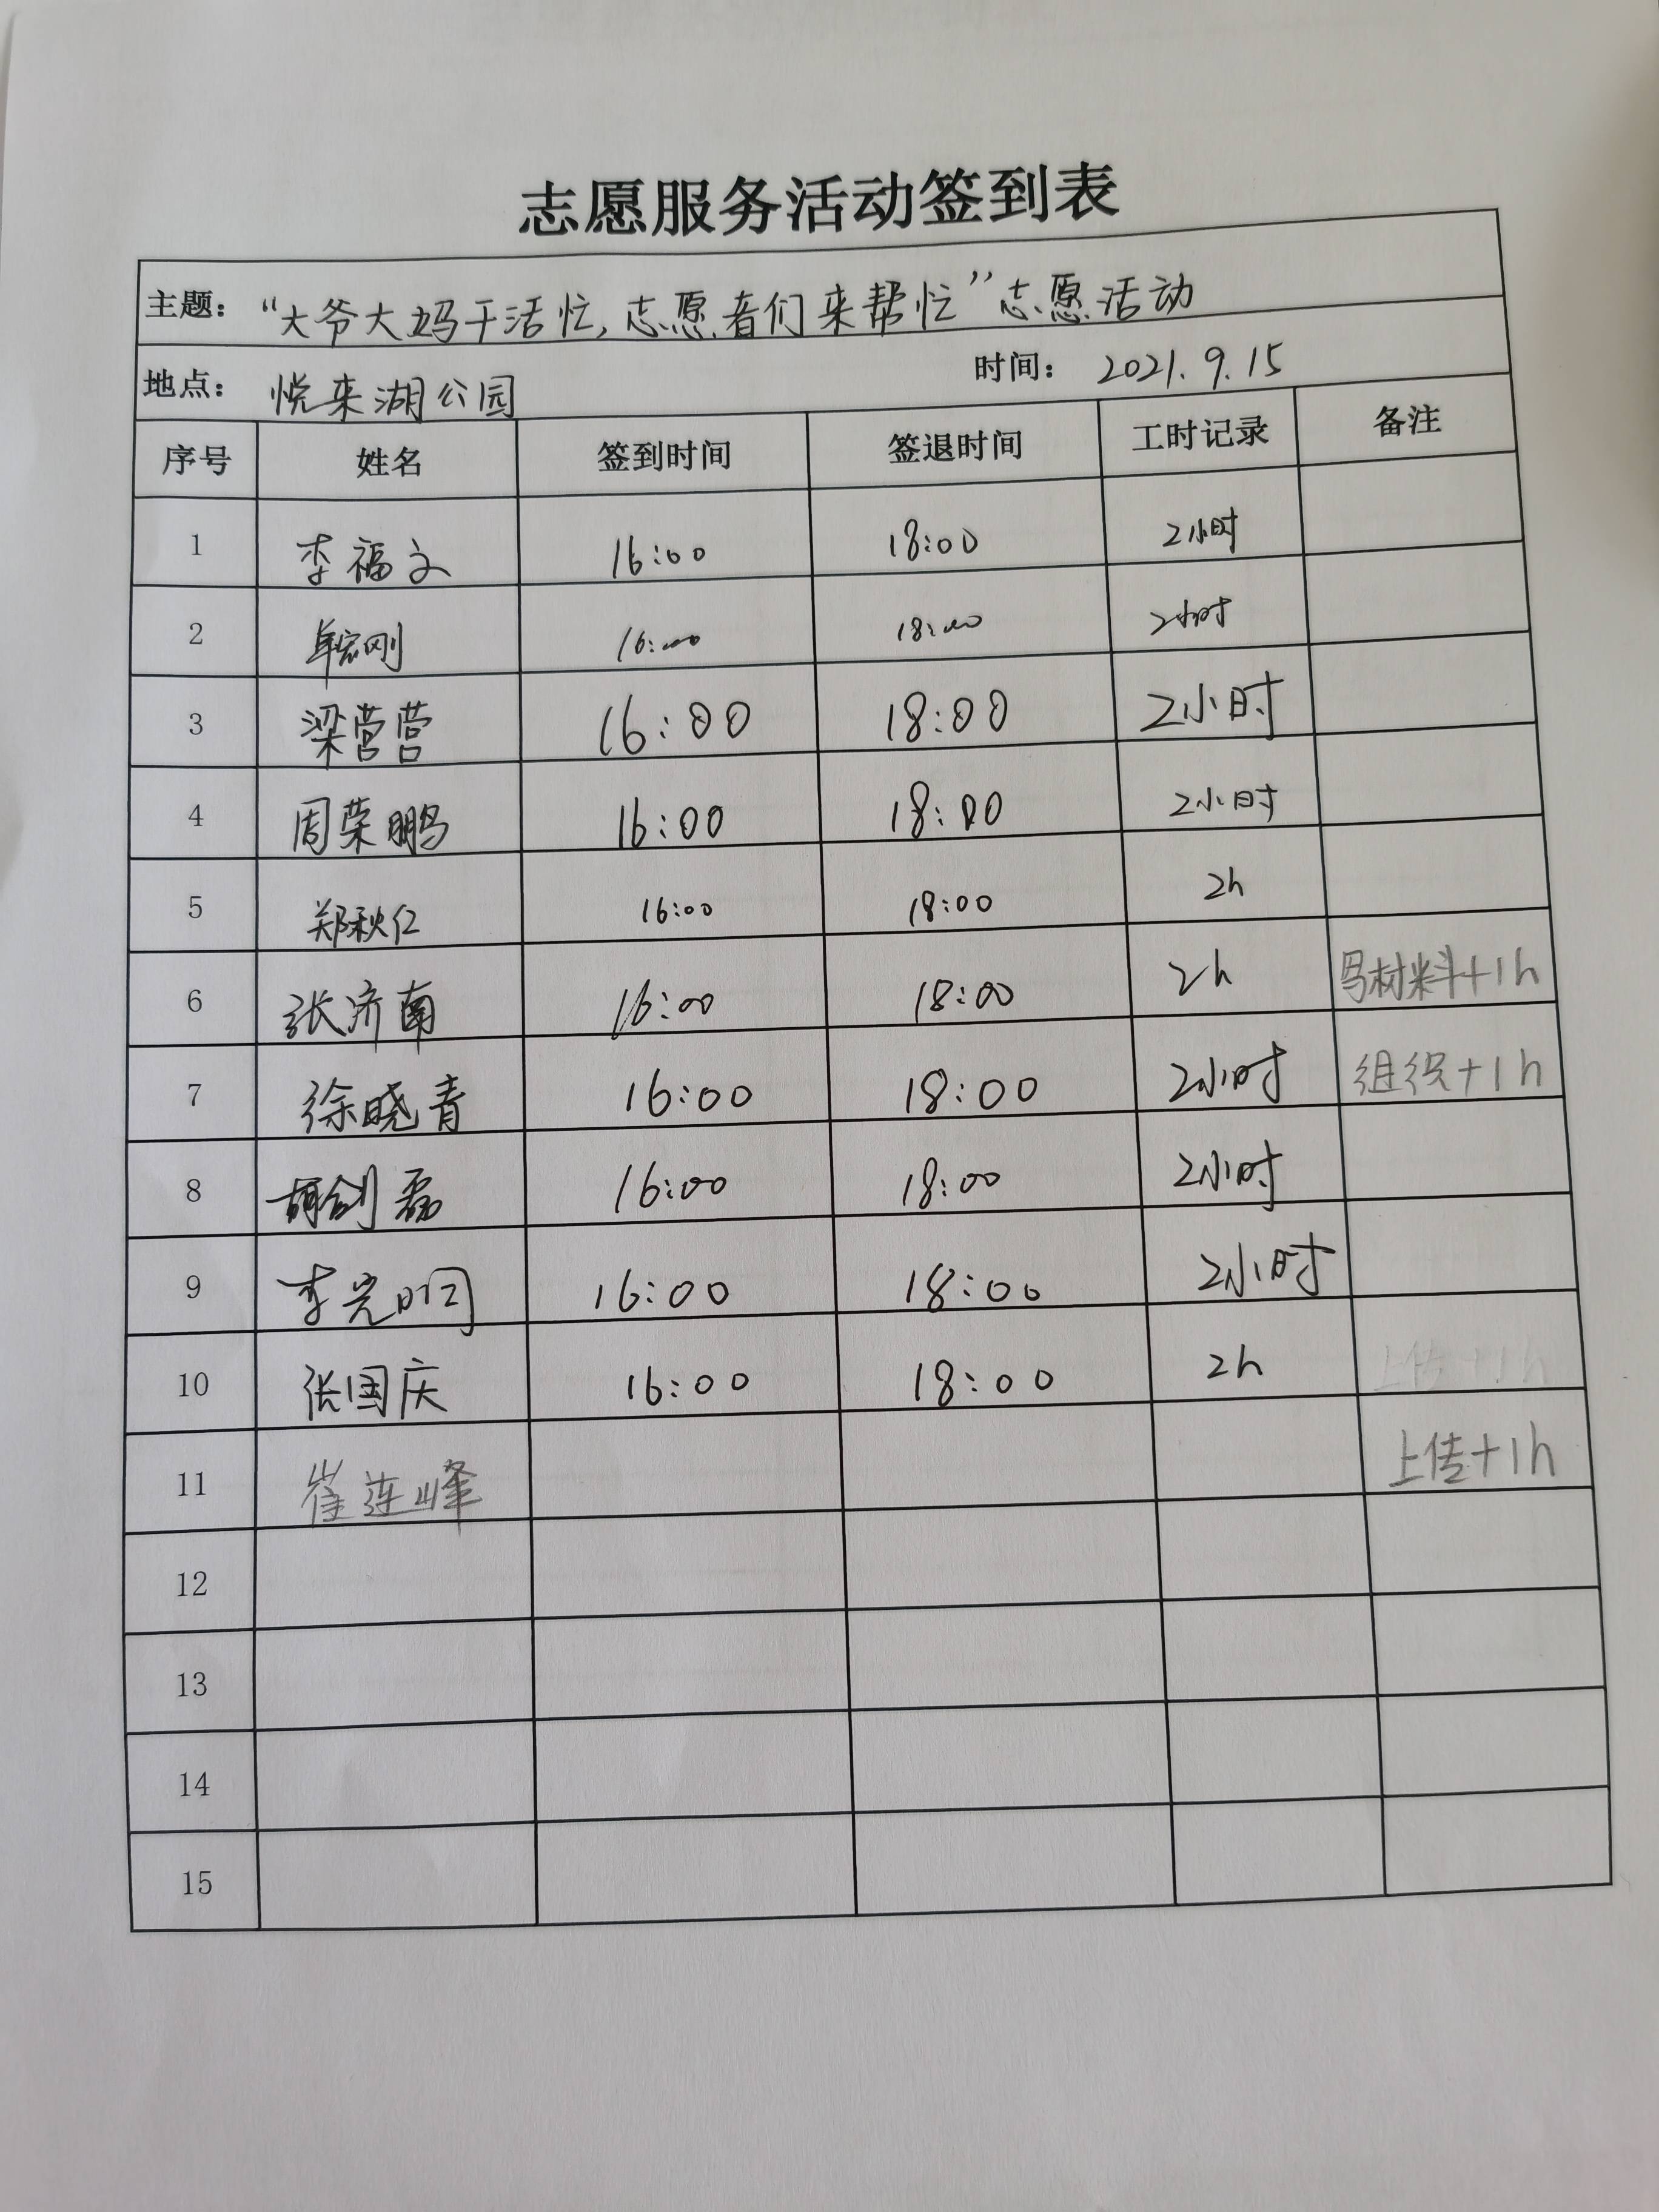 志愿服务活动签到表
主题： “大爷大妈干活忙，志愿者们来帮忙”志愿活动
地点： 悦来湖公园 时间： 2021.9.15
序号 姓名 签到时间 签退时间 工时记录 备注
1 李福文 16:00 18:00 2小时
2 16:00 18:00 2小时
3 梁营营 16:00 18:00 2小时
4 周荣鹏 16:00 18:00 2小时
5 郑秋仁 16:00 18:00 2h
6 张济南 16:00 18:00 2h 写材料+1h
7 徐晓青 16:00 18:00 2小时 组织+1h
8 胡剑磊 16:00 18:00 2小时
9 16:00 18:00 2小时
10 张国庆 16:00 18:00 2h 上传+1h
11 崔连峰 上传+1h
12
13
14
15